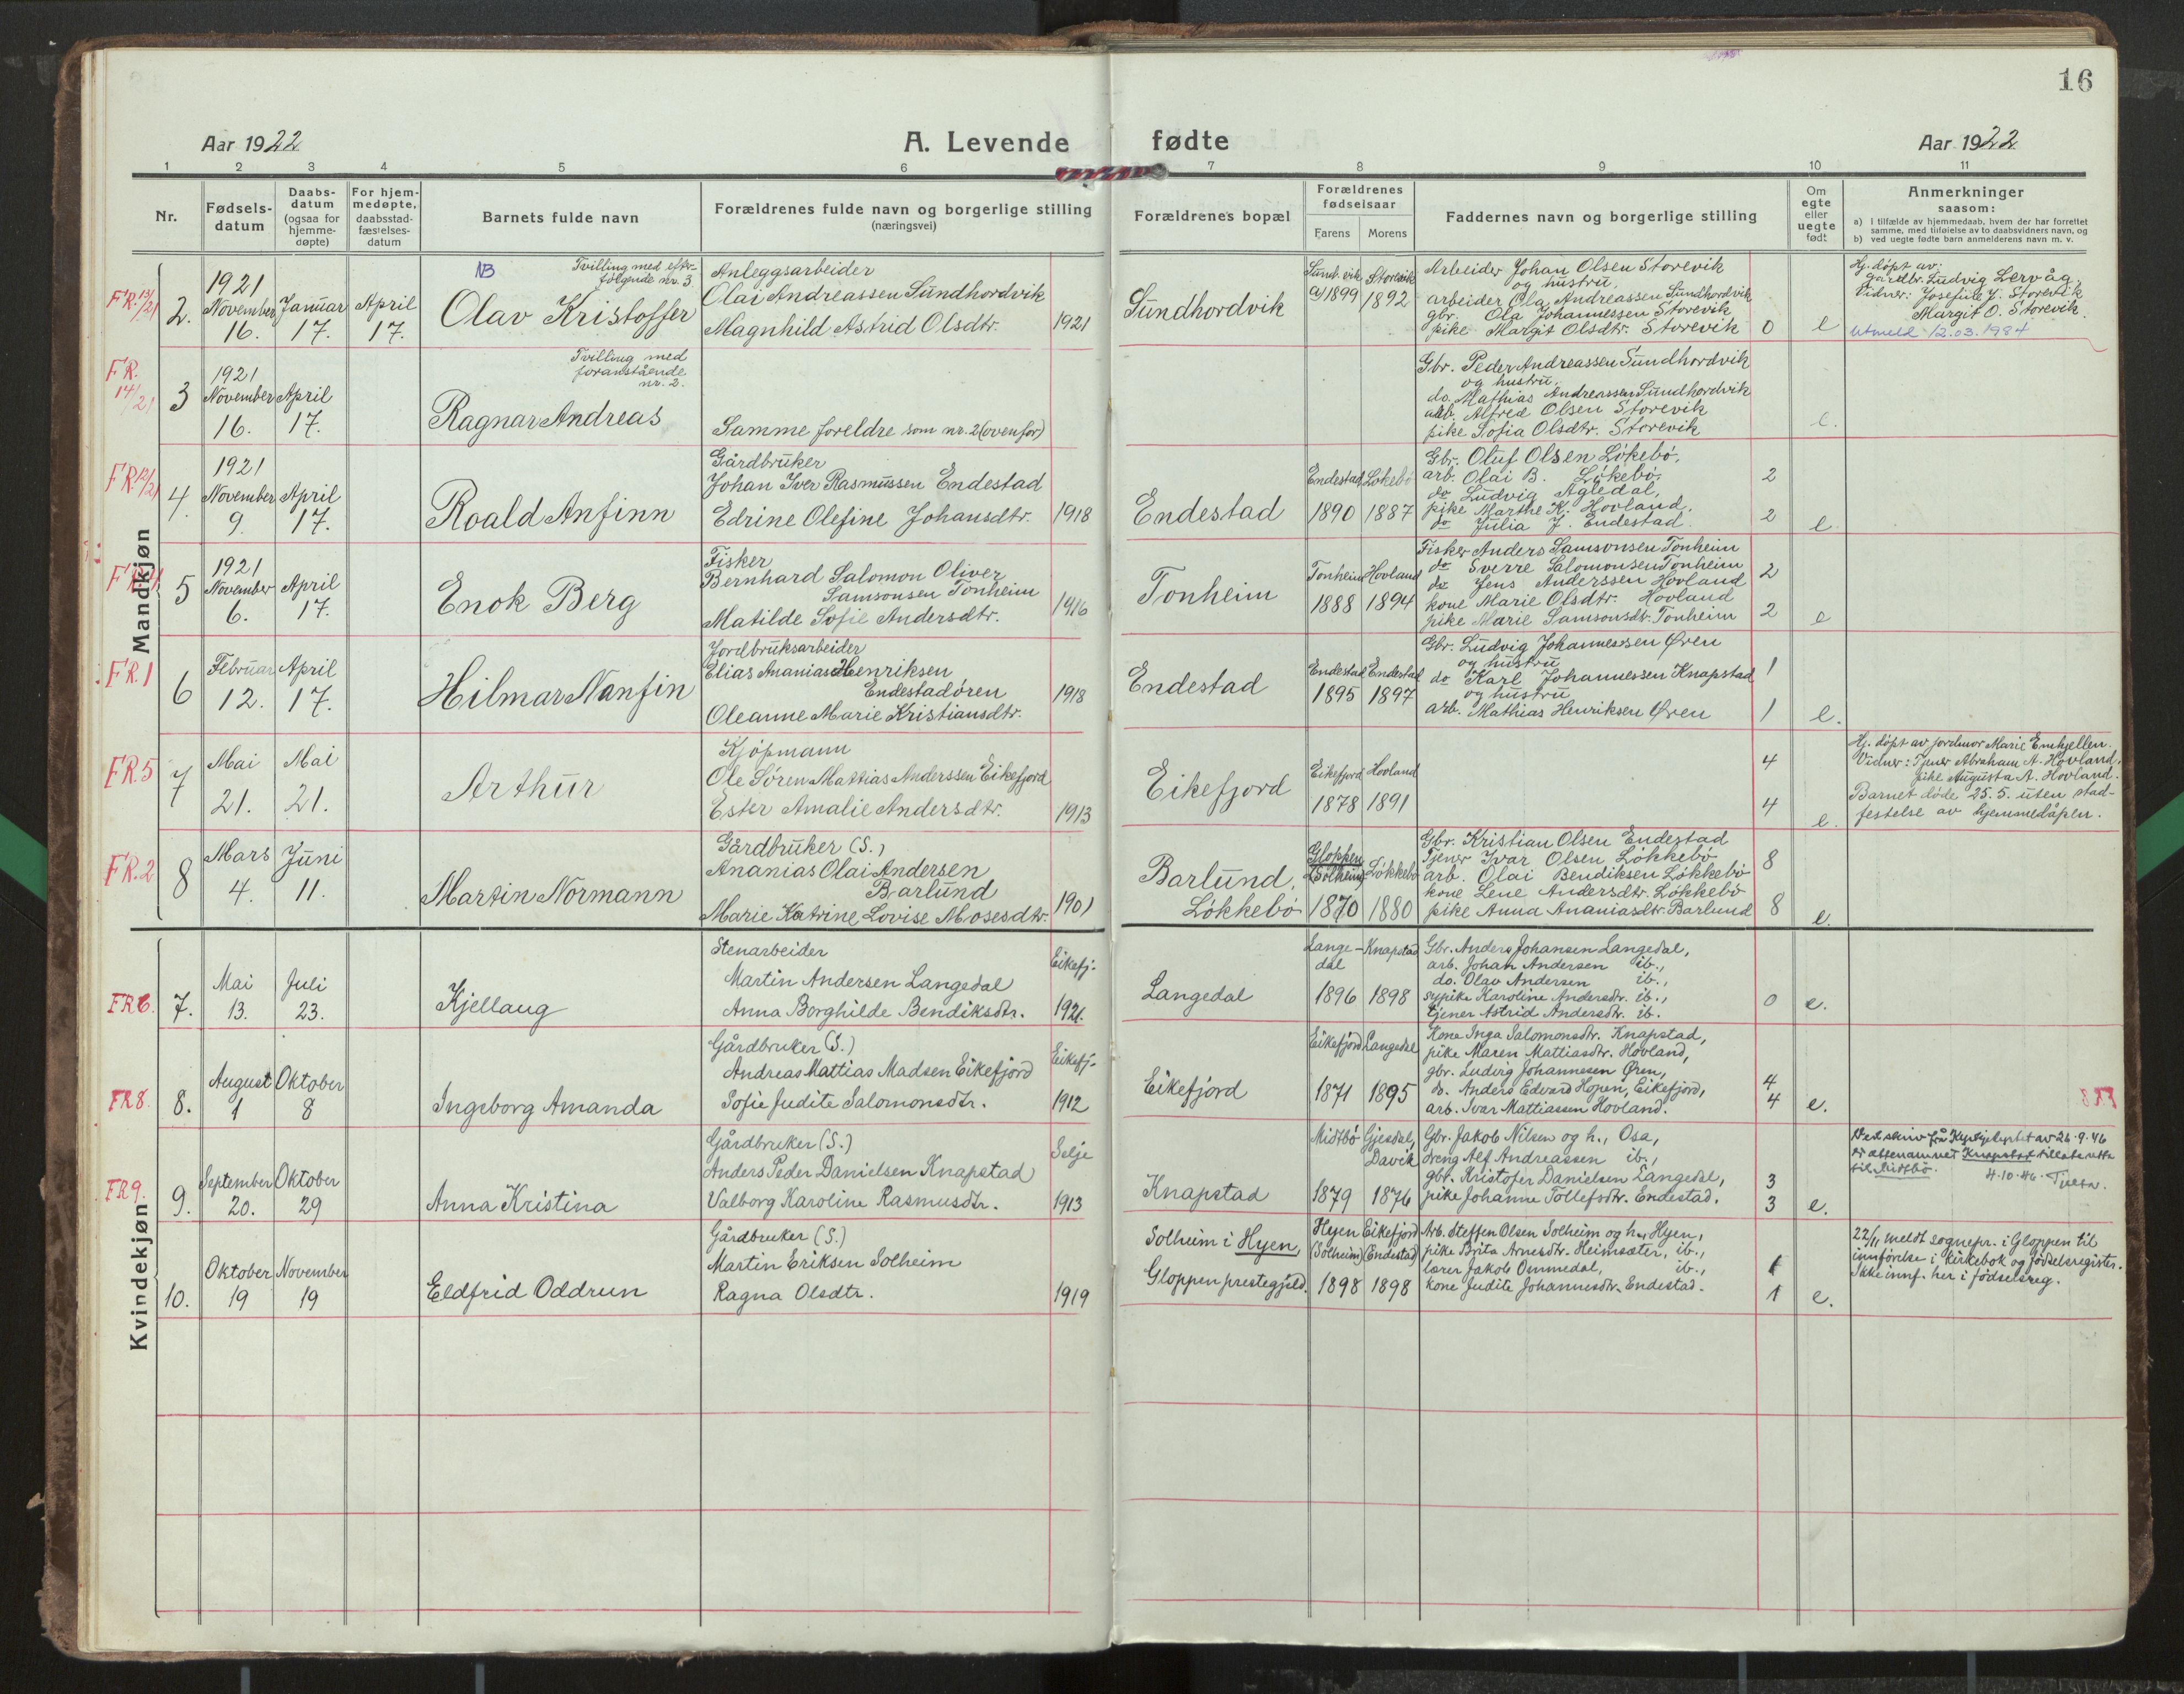 16
Aar 1922
A. Levende fødte
Aar 1922
1 2 3 4 5 6 7 8 9 10 11
Nr.
Fødsels-
datum
Daabs-
datum
(ogsaa for
hjemme-
døpte)
For hjem-
medøpte,
daabsstad-
fæstelses-
datum
Barnets fulde navn
Forældrenes fulde navn og borgerlige stilling
(næringsvei)
Forældrenes bopæl
Forældrenes
fødselsaar
Farens Morens
Faddernes navn og borgerlige stilling
Om
egte
eller
uegte
født
Anmerkninger
saasom:
a) I tilfælde av hjemmedaab, hvem der har forrettet
samme, med tilføielse av to daabsvidners navn, og
b) ved uegte fødte barn anmelderens navn m. v.
Mandkjøn
FR. 13/21
2.
1921
November
16.
Januar
17.
April
17.
NB
Tvilling med efter-
følgende nr. 3
Olav Kristoffer
Anleggsarbeider
Olai Andreassen Sundhordvik
Magnhild Astrid Olsdtr. 1921
Sundhordvik
Sundh.vik
1899
Storevik
1892
Arbeider Johan Olsen Storevik
og hustru,
arbeider Ola Andreassen Sundhordvik
gbr. Ola Johannessen Storevik
pike Margit Olsdtr. Storevik
0
e
Hj. døpt av:
gardbr. Ludvig Lervåg,
Vidner: Josefine J. Storevik
Margit O. Storevik.
Utmeld 12.03.1984
FR.
14/21
3
1921
November
16.
April
17.
Tvilling med
foranstående
nr. 2.
Ragnar Andreas
Samme foreldre som nr. 2 (ovenfor)
Gbr. Peder Andreassen Sundhordvik
og hustru,
do. Mathias Andreassen Sundhordvik
arb. Alfred Olsen Storevik
pike Sofia Olsdtr. Storevik
e.
FR 12/21
4.
1921
November
9.
April
17.
Roald Anfinn
Gårdbruker
Johan Iver Rasmussen Endestad
Edrine Olefine Johansdtr. 1918
Endestad
Endestad
1890
Løkebø
1887
Gbr. Oluf Olsen Løkebø,
arb. Olai B. Løkebø,
do Ludvig Agledal,
pike Marthe K. Hovland,
do Julia J. Endestad.
2
2
e
5
1921
November
6.
April
17.
Enok Berg
Fisker
Bernhard Salomon Oliver
Samsonsen Tonheim
Matilde Sofie Andersdtr. 1916
Tonheim
Tonheim
1888
Hovland
1894
Fisker Anders Samsonsen Tonheim
do Sverre Salomonsen Tonheim
do Jens Anderssen Hovland
kone Marie Olsdtr. Hovland
pike Marie Samsonsdtr. Tonheim
2
2
e
FR. 1
6
Februar
12.
April
17.
Hilmar Nanfin
Jordbruksarbeider
Elias Ananias Henriksen
Endestadøren
Oleanne Marie Kristiansdtr. 1918
Endestad
Endestad
1895
Endestad
1897
Gbr. Ludvig Johannessen Øren
og hustru
do Karl Johannessen Knapstad
og hustru
arb. Mathias Henriksen Øren
1
1
e.
FR. 5
7
Mai
21.
Mai
21.
Arthur
Kjøpmann
Ole Søren Mattias Anderssen Eikefjord
Ester Amalie Andersdtr. 1913
Eikefjord
Eikefjord
1878
Hovland
1891
4
4
e.
Hj. døpt av jordmor Marie Emhjellen.
Vidner: Tjener Abraham A. Hovland,
pike Augusta A. Hovland.
Barnet døde 25.5. uten stad-
festelse av hjemmedåpen.
FR. 2
8
Mars
4.
Juni
11.
Martin Normann
Gårdbruker (S.)
Ananias Olai Andersen
Barlund
Marie Katrine Lovise Mosesdtr. 1901
Barlund,
Løkkebø
Gloppen
(Solheim)
1870
Løkkebø
1880
Gbr. Kristian Olsen Endestad
Tjener Ivar Olsen Løkkebø
arb. Olai Bendiksen Løkkebø
kone Lene Andersdtr. Løkkebø
pike Anna Ananiasdtr. Barlund
8
8
e.
Kvindekjøn
FR 6.
7.
Mai
13.
Juli
23.
Kjellaug
Stenarbeider
Martin Andersen Langedal
Anna Borghilde Bendiksdtr.
Eikefj.
1921.
Langedal
Lange-
dal
1896
Knapstad
1898
Gbr. Anders Johansen Langedal,
arb. Johan Andersen ib.,
do. Olav Andersen ib.,
sypike Karoline Andersdtr. ib.,
tjener Astrid Andersdtr. ib.
0
e.
FR 8.
8.
August
1
Oktober
8
Ingeborg Amanda
Gårdbruker (S.)
Andreas Mattias Madsen Eikefjord
Sofie Judite Salomonsdtr.
Eikefj.
1912
Eikefjord
Eikefjord
1871
Langedal
1895
Kone Inga Salomonsdtr. Knapstad,
pike Maren Mattiasdtr. Hovland,
gbr. Ludvig Johannesen Øren,
do. Anders Edvard Hopen, Eikefjord,
arb. Ivar Mattiassen Hovland.
4
4
e.
FR 9.
9.
September
20.
Oktober
29
Anna Kristina
Gårdbruker (S.)
Anders Peder Danielsen Knapstad
Valborg Karoline Rasmusdtr.
Selje
1913
Knapstad
Midtbø
1879
Gjesdal,
Davik
1876
Gbr. Jakob Nilsen og h., Osa,
dreng Alf Andreassen ib.,
gbr. Kristofer Danielsen Langedal,
pike Johanne Tollefsdtr. Endestad.
3
3
e.
Ved skriv frå Kyrkjedept av 26.9.46
er ættenamnet Knapstad
til Midtbø.
4.10.46.
10.
Oktober
19
November
19
Eldfrid Oddrun
Gårdbruker (S.)
Martin Eriksen Solheim
Ragna Olsdtr. 1919
Solheim i Hyen,
Gloppen prestegjeld.
Hyen
(Solheim)
1898
Eikefjord
(Endestad)
1898
Arb. Steffen Olsen Solheim og h., Hyen,
pike Brita Arnesdtr. Heimsæter, ib.,
lærer Jakob Ommedal, ib.,
kone Judite Johannesdtr. Endestad.
1
1
e.
22/11 meldt sognepr. i Gloppen til
innførelse i kirkebok og fødselsregister.
Ikke innf. her i fødselsreg.